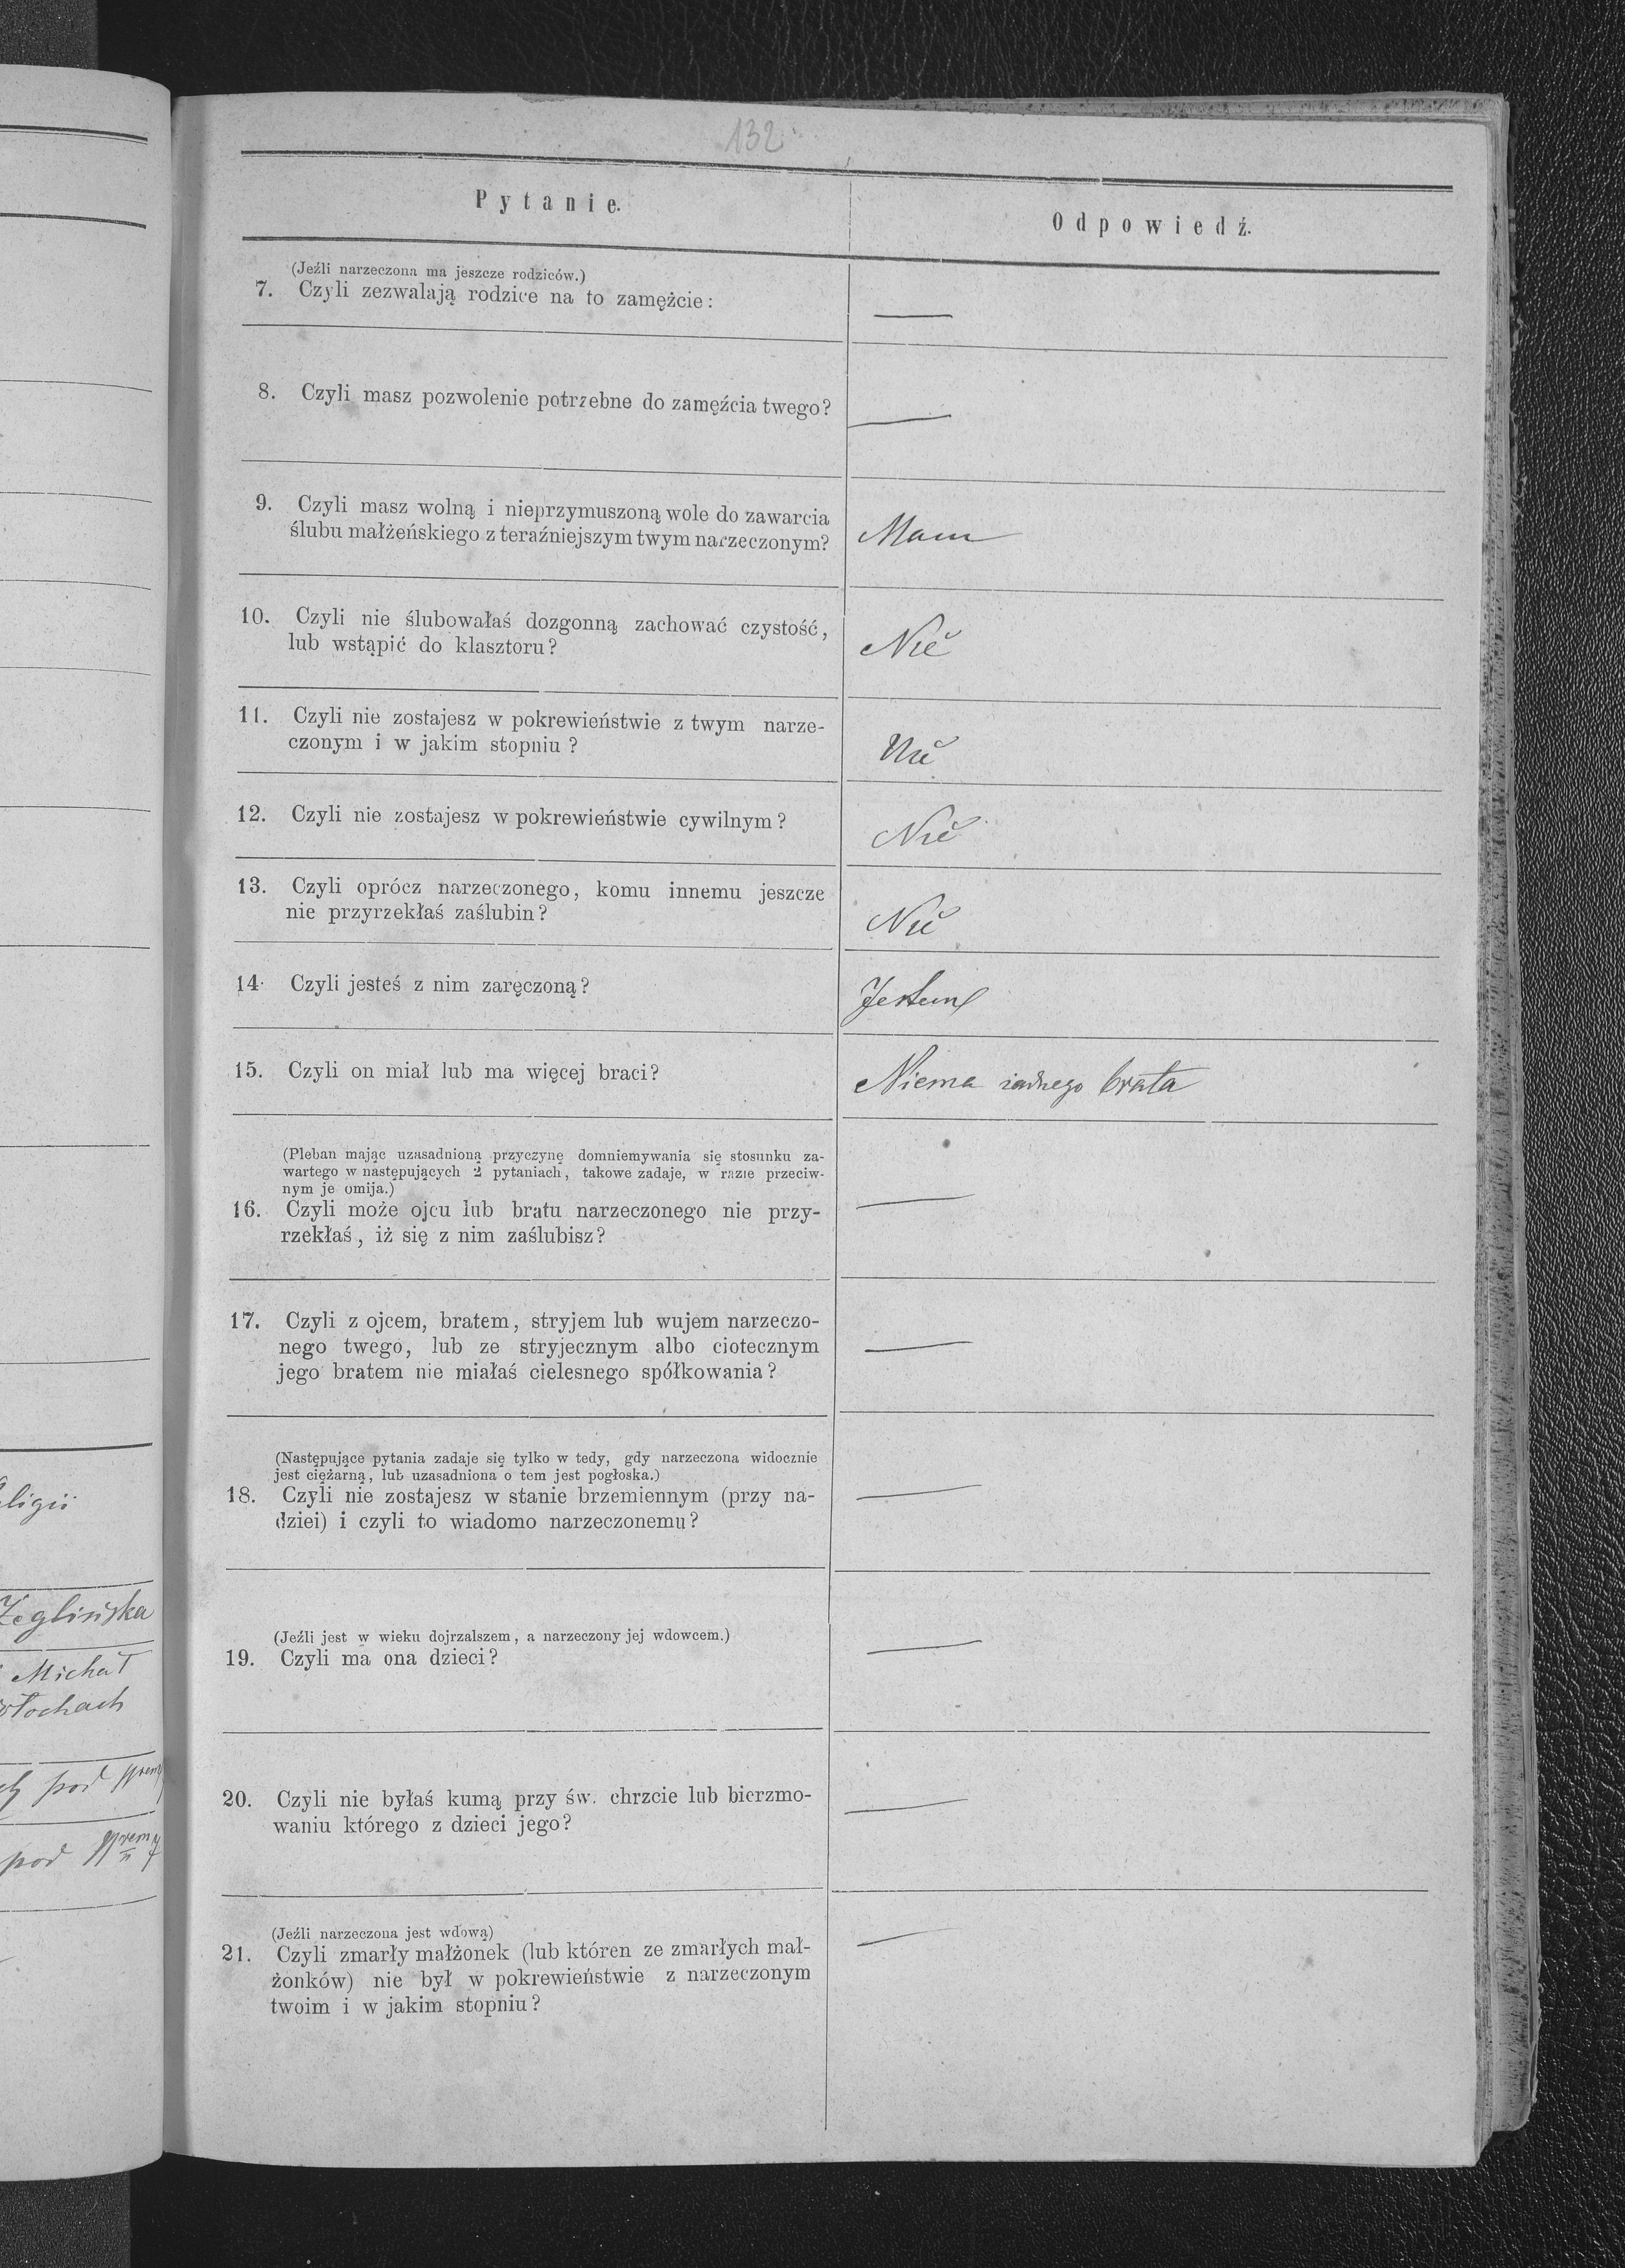 132
Pytanie.
Odpowiedź.
(Jeźli narzeczona ma jeszcze rodziców.)
7. Czyli zezwalają rodzice na to zamężcie:
—
8. Czyli masz pozwolenie potrzebne do zamęźcia twego?
—
9. Czyli masz wolną i nieprzymuszoną wole do zawarcia
ślubu małżeńskiego z teraźniejszym twym narzeczonym?
Mam
10. Czyli nie ślubowałaś dozgonną zachować czystość,
lub wstąpić do klasztoru?
Nie
11. Czyli nie zostajesz w pokrewieństwie z twym narze-
czonym i w jakim stopniu?
Nie
12. Czyli nie zostajesz w pokrewieństwie cywilnym?
Nie
13. Czyli oprócz narzeczonego, komu innemu jeszcze
nie przyrzekłaś zaślubin?
Nie
14. Czyli jesteś z nim zaręczoną?
Jestem
15. Czyli on miał lub ma więcej braci?
Niema żadnego brata
(Pleban mając uzasadnioną przyczynę domniemywania się stosunku za-
wartego w następujących 2 pytaniach, takowe zadaje, w razie przeciw-
nym je omija.)
16. Czyli może ojcu lub bratu narzeczonego nie przy-
rzekłaś, iż się z nim zaślubisz?
—
17. Czyli z ojcem, bratem, stryjem lub wujem narzeczo-
nego twego, lub ze stryjecznym albo ciotecznym
jego bratem nie miałaś cielesnego spółkowania?
—
(Następujące pytania zadaje się tylko w tedy, gdy narzeczona widocznie
jest ciężarną, lub uzasadniona o tem jest pogłoska.)
18. Czyli nie zostajesz w stanie brzemiennym (przy na-
dziei) i czyli to wiadomo narzeczonemu?
—
(Jeźli jest w wieku dojrzalszem, a narzeczony jej wdowcem.)
19. Czyli ma ona dzieci?
—
20. Czyli nie byłaś kumą przy św. chrzcie lub bierzmo-
waniu którego z dzieci jego?
—
(Jeźli narzeczona jest wdową)
21. Czyli zmarły małżonek (lub któren ze zmarłych mał-
żonków) nie był w pokrewieństwie z narzeczonym
twoim i w jakim stopniu?
—
Żeglińska
Michał
pod
pod